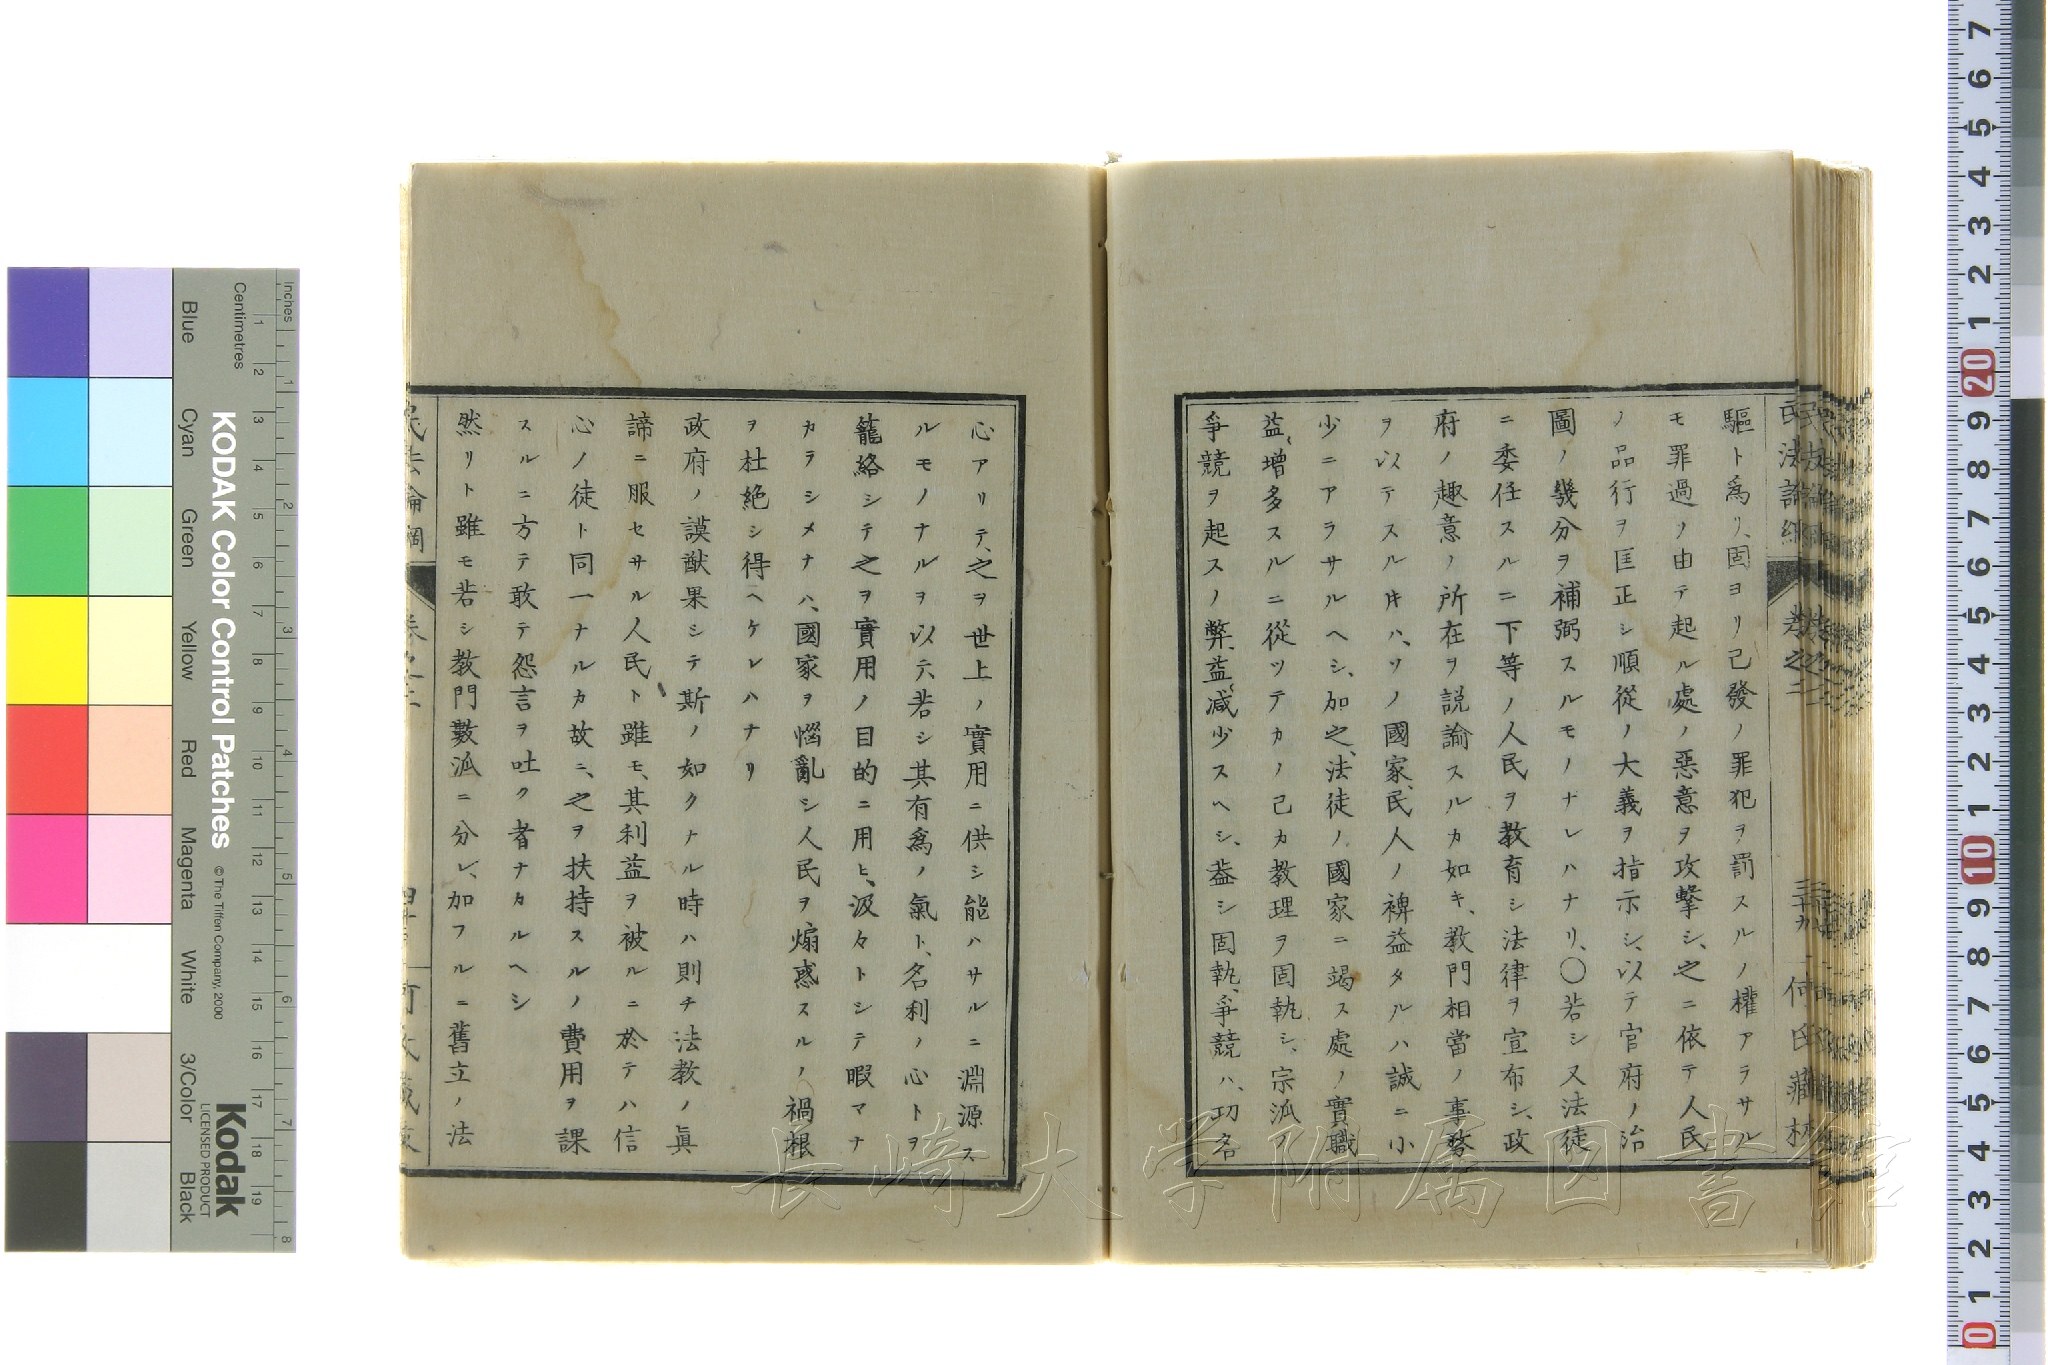 驅ト爲リ、固ヨリ己發ノ罪犯ヲ罰スルノ權アラサル
モ罪過ノ由テ起ル處ノ惡意ヲ攻撃シ、之ニ依テ人民
ノ品行ヲ匡正シ順從ノ大義ヲ指示シ、以テ官府ノ治
圖ノ幾分ヲ補弼スルモノナレハナリ、〇若シ又法徒
ニ委任スルニ下等ノ人民ヲ教育シ法律ヲ宣布シ、政
府ノ趣意ノ所在ヲ説諭スルカ如キ、教門相當ノ事務
ヲ以テスル𪜈ハ、ソノ國家、民人ノ裨益タルハ誠ニ小
少ニアラサルヘシ、加之、法徒ノ國家ニ竭ス處ノ實職
益、増多スルニ從ツテカノ己カ教理ヲ固執シ、宗派ノ
爭競ヲ起スノ弊、益、減少スヘシ、蓋シ固執、爭競ハ、功名
心アリテ、之ヲ世上ノ實用ニ供シ能ハサルニ淵源ス
ルモノナルヲ以テ六若シ其有爲ノ氣ト、名利ノ心トヲ
籠絡シテ之ヲ實用ノ目的ニ用ヒ、汲々トシテ暇マナ
カラシメナハ、國家ヲ惱亂シ人民ヲ煽惑スルノ禍根
ヲ杜絶シ得ヘケレハナリ
政府ノ謨猷果シテ斯ノ如クナル時ハ則チ法教ノ眞
諦ニ服セサル人民ト雖モ、其利益ヲ被ルニ於テハ信
心ノ徒ト同一ナルカ故ニ、之ヲ扶持スルノ費用ヲ課
スルニ方テ敢テ怨言ヲ吐ク者ナカルヘシ
然リト雖モ若シ教門數派ニ分レ、加フルニ舊立ノ法
民法論綱 卷之二 三十九 何氏藏
長崎大学附属図書館
KODAK Color Control Patches
© The Tiffen Company, 2000
Kodak
LICENSED PRODUCT
Inches
Centimetres
Blue Cyan Green Yellow Red Magenta White 3/Color Black
1 2 3 4 5 6 7 8 9 10 11 12 13 14 15 16 17 18 19
1 2 3 4 5 6 7 8
7 6 5 4 3 2 1 20 9 8 7 6 5 4 3 2 1 10 9 8 7 6 5 4 3 2 1 0